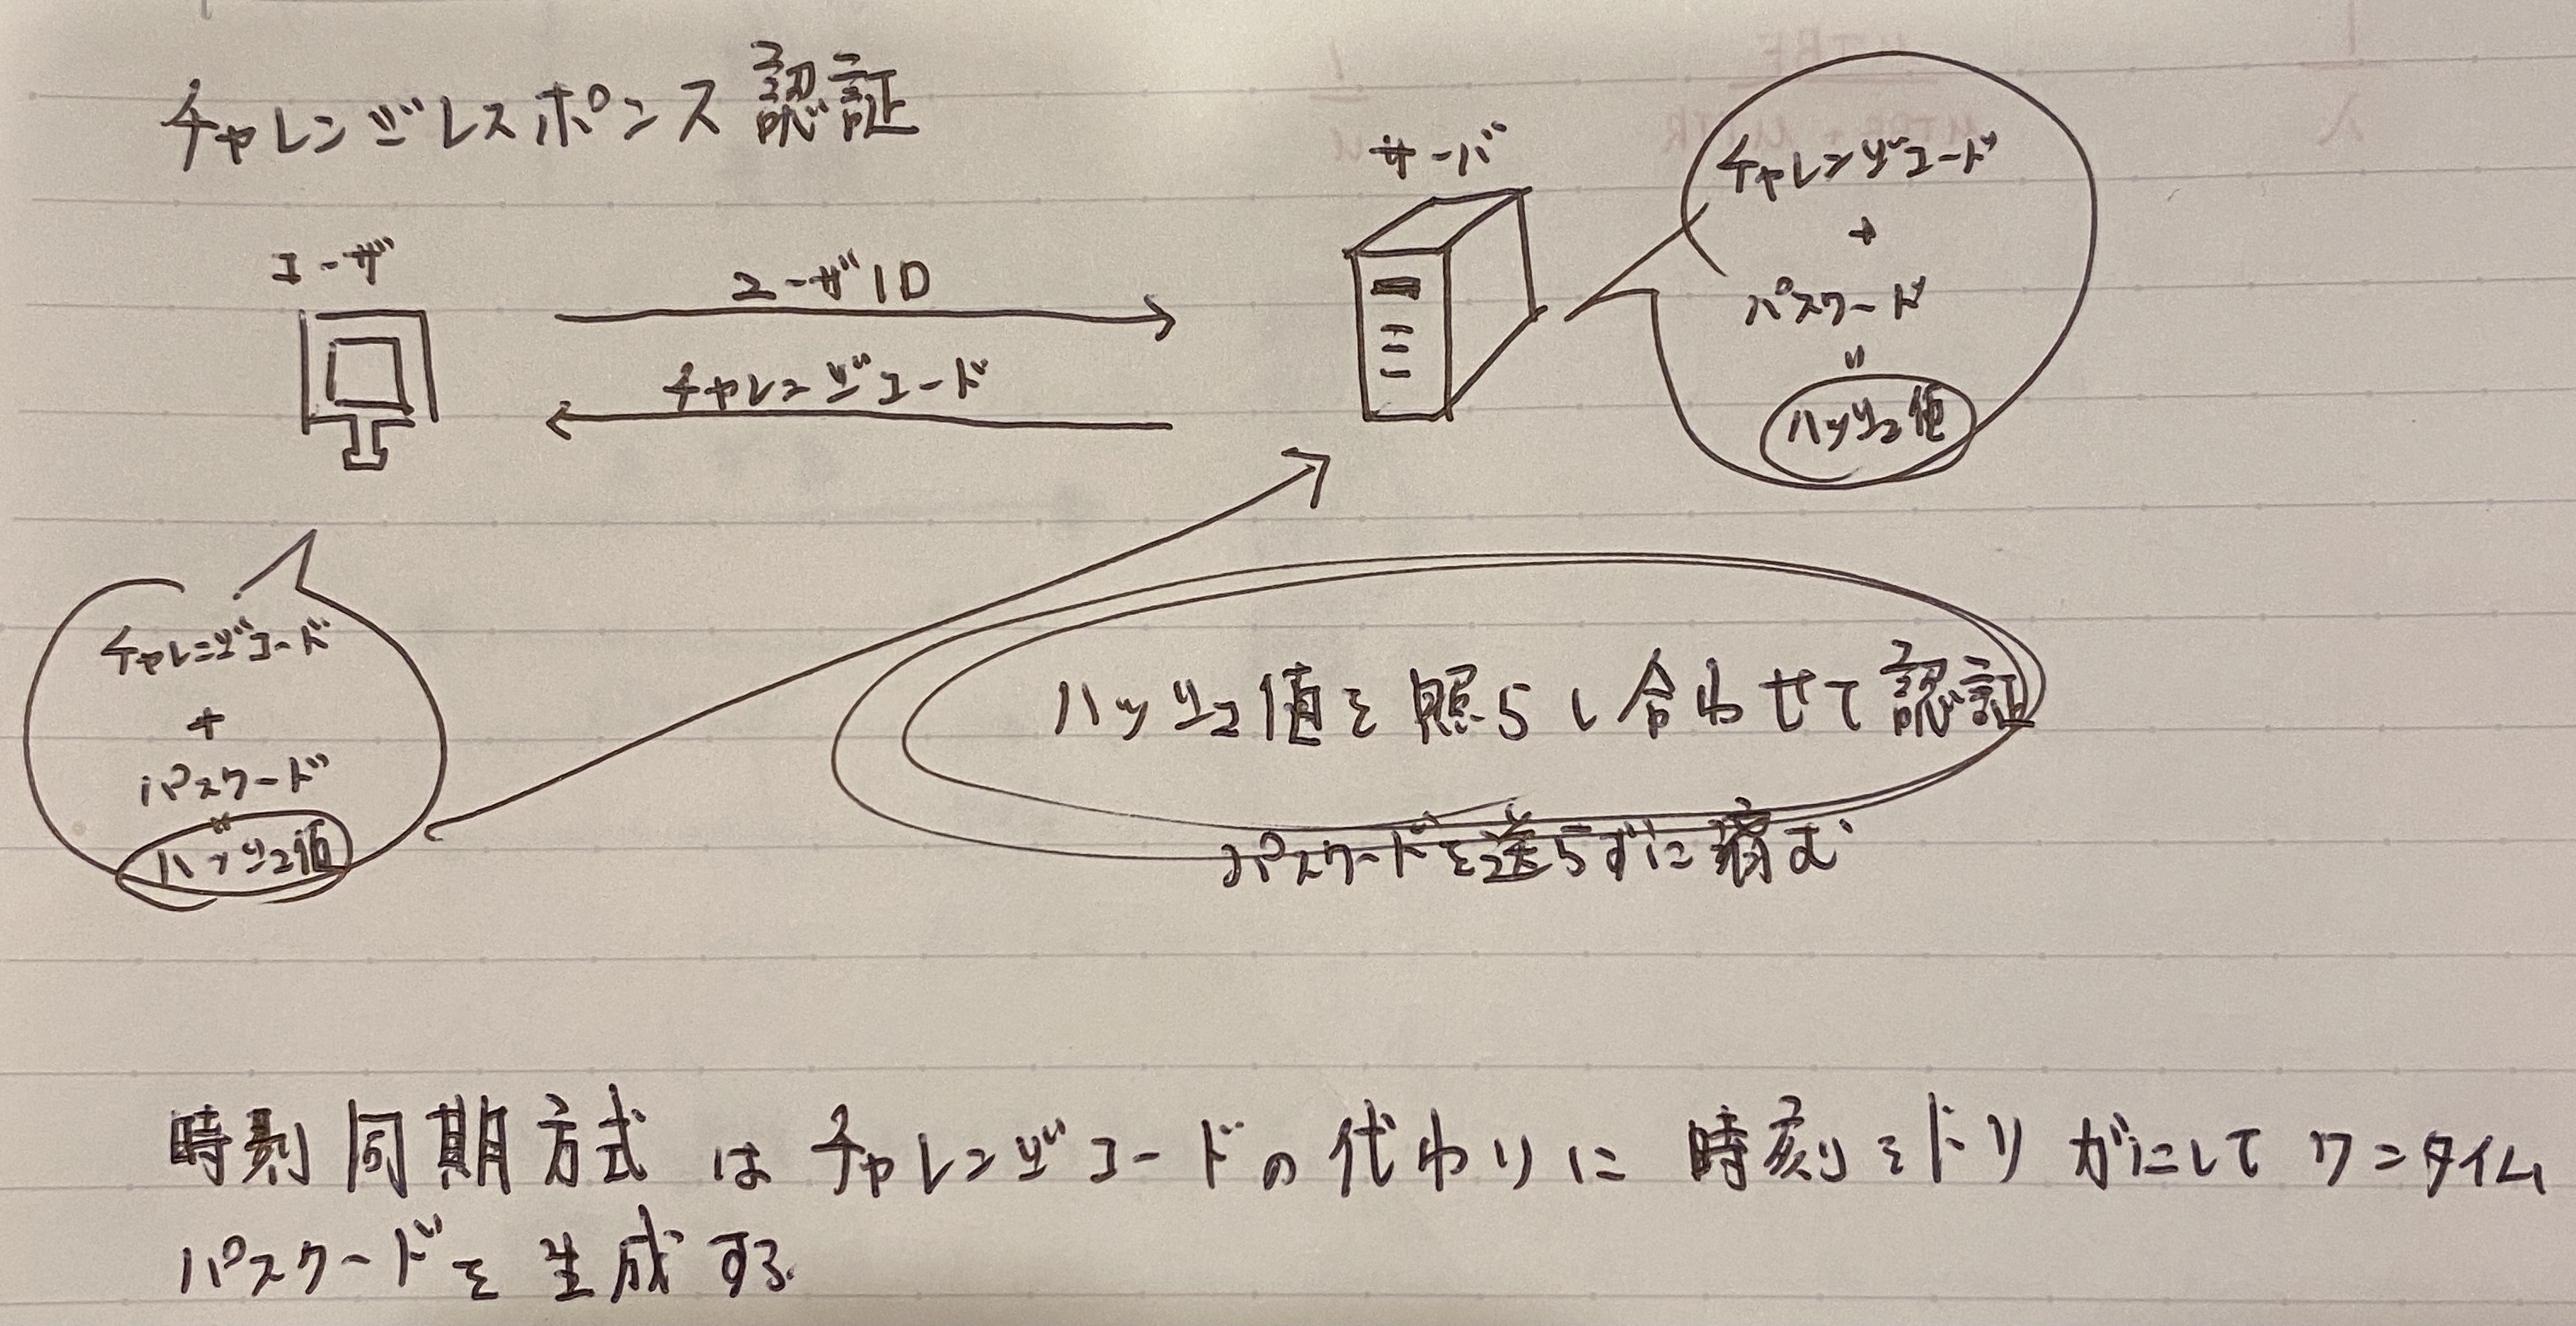 チャレンジレスポンス認証
サーバ
チャレンジコード
+
パスワード
〃
ハッシュ値
ユーザ
ユーザID
チャレンジコード
チャレンジコード
+
パスワード
〃
ハッシュ値
ハッシュ値を照らし合わせて認証
パスワードを送らずに済む
時刻同期方式はチャレンジコードの代わりに時刻をトリガにしてワンタイム
パスワードを生成する